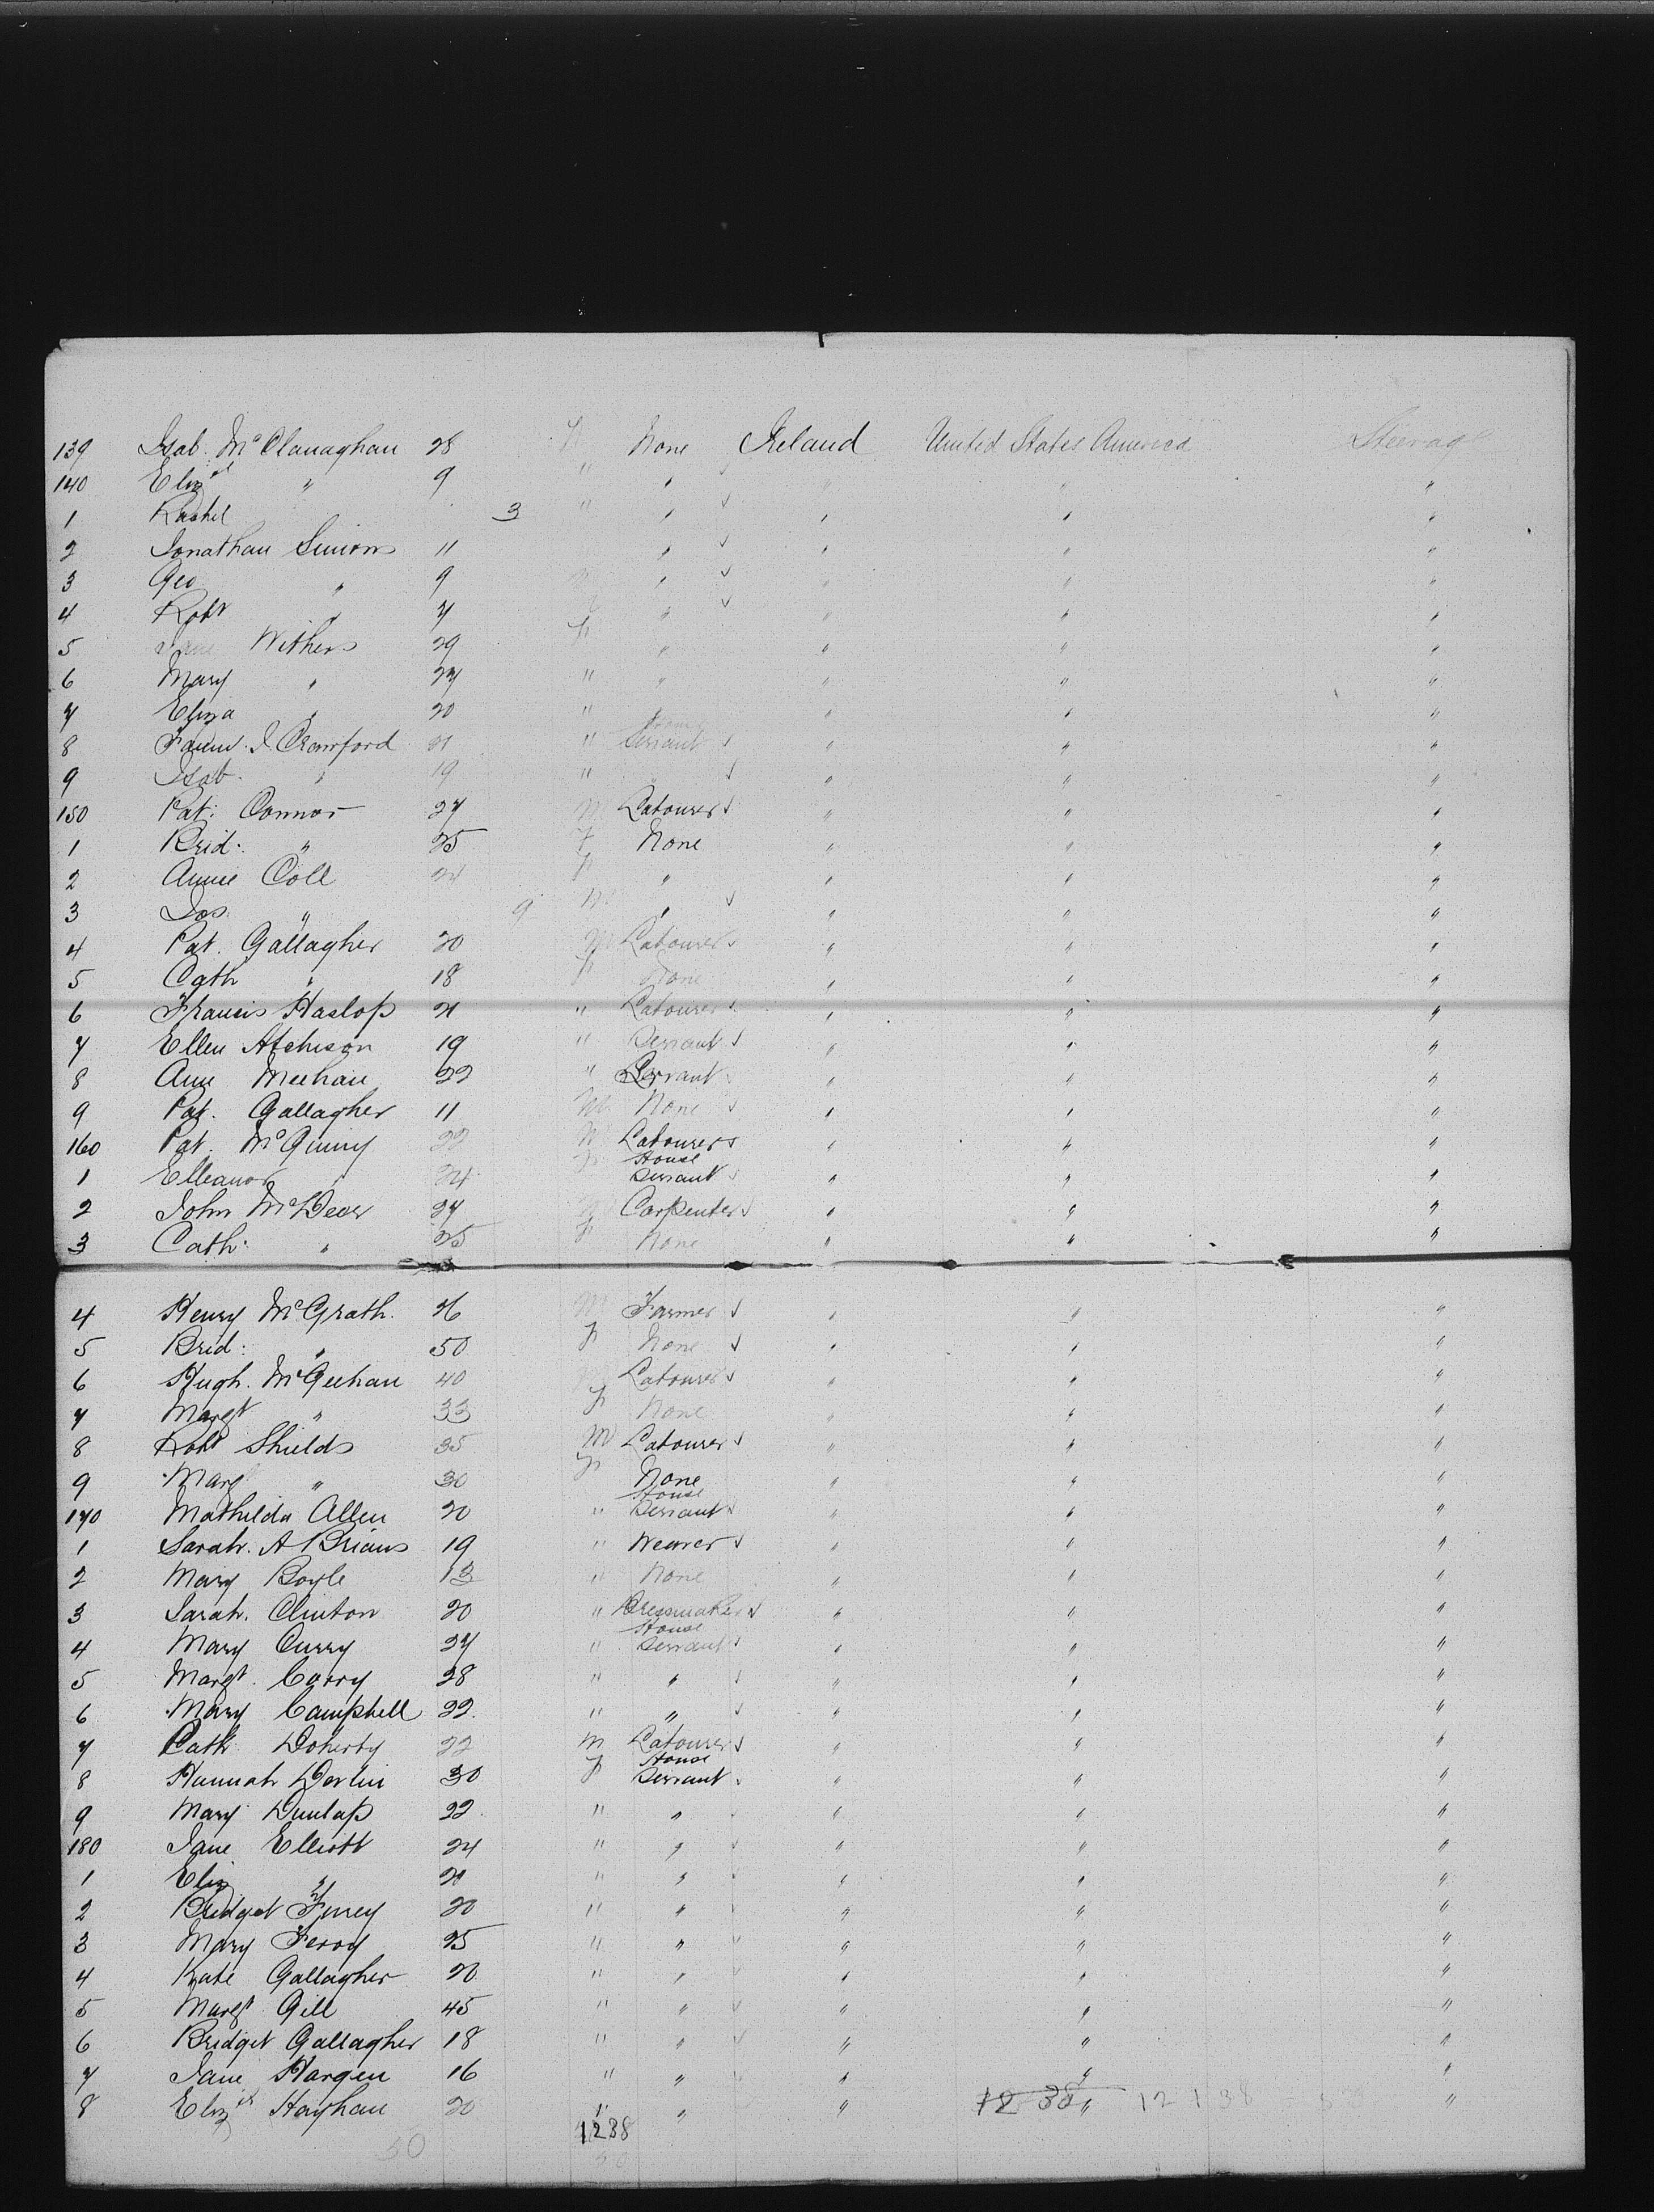 139 Isab. McClanaghan 28 F None Ireland United States America Steerage
140 Elizth " 9 " " " " "
1 Rachel 3 " " " " "
2 Jonathan Simions 11 " " " "
3 Geo " 9 " " " "
4 Robt " 7 " " " "
5 Jane Withers 29 F " " " "
6 Mary " 24 " " " " "
7 Eliza " 20 " " " " "
8 J. Crawford 21 " Servant " " "
9 Isab. " 19 " " " " "
150 Pat: Connor 27 M Labourer " " "
1 Brid: " 25 F None " " "
2 Annie Coll 24 F " " " "
3 Jos " 9 M " " " "
4 Pat. Gallagher 20 M Labourer " " "
5 Cath " 18 F None " " "
6 Francis Haslop 21 " Labourer " " "
7 Ellen Atcheson 19 " Servant " " "
8 Ann Meehan 22 " Servant " " "
9 Pat. Gallagher 11 M None " " "
160 Pat. 22 M Labourer " " "
1 Elleanor " 24 F House Servant " " "
2 John McDeer 27 M Carpenter " " "
3 Cath: " 25 F None " " "
4 Henry McGrath. 26 M Farmer " " "
5 Brid: " 50 F None " " "
6 Hugh. McGeehan 40 M Labourer " " "
7 Margt " 33 F None " " "
8 Robt Shields 35 M Labourer " " "
9 Marg " 30 F None " " "
170 Mathilda Allen 20 " House Servant " " "
1 Sarah. A Brians 19 " Weaver " " "
2 Mary Boyle 13 " None " " "
3 Sarah. Clinton 20 " Dressmaker " " "
4 Mary Curry 27 " House Servant " " "
5 Margt. Carry 28 " " " " "
6 Mary Campbell 22. " " " " "
7 Cath Doherty 22 M Labourer " " "
8 Hannah Devlin 30 F House Servant " " "
9 Mary Dunlap 22 " " " " "
180 Jane Elliott 24 " " " " "
1 Eliz " 21 " " " " "
2 Bridget 20 " " " " "
3 Mary Feroy 25 " " " " "
4 Kate Gallagher 20 " " " " "
5 Margt Gill 45 " " " " "
6 Bridget Gallagher 18 " " " " "
7 Jane Hargen 16 " " " " "
8 Elizth Hayhan 20 " " " " "
12 38 12 1 38
1238
50